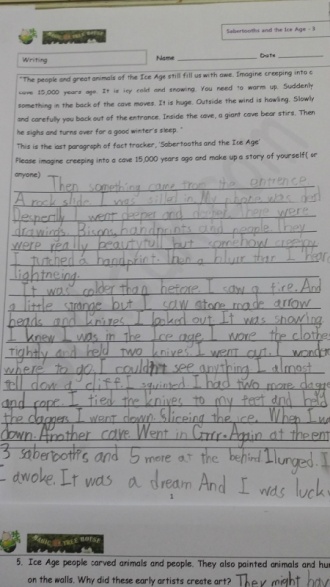 MAGIC TREE HOUSE
Sabertooths and the Ice Age - 3
Writing Name Date
"The people and great animals of the Ice Age still fill us with awe. Imagine creeping into a
cave 15,000 years ago. It is icy cold and snowing. You need to warm up. Suddenly
something in the back of the cave moves. It is huge. Outside the wind is howling. Slowly
and carefully you back out of the entrance. Inside the cave, a giant cave bear stirs. Then
he sighs and turns over for a good winter's sleep. "
This is the last paragraph of fact tracker, 'Sabertooths and the Ice Age'
Please imagine creeping into a cave 15,000 years ago and make up a story of yourself( or
anyone)
Then something came from the entrence
A rock slide I was in My phone was
I went deeper and There were
drawings. Bison, handprints and people. They
were really beautyfull but somehow creepy
I tutched a handprint. Then a blurr than I hear
lightneing.
It was colder than before. I saw a fire. And
a little strange but I saw stone made arrow
heads and knifes I looked out It was snowing
I knew I was in the Ice age I wore the clothe
tightly and held two knives I went out. I wonder
where to go. I couldn't see anything I almost
fell down a cliff. I squinsed I had two more dagg
and rope. I tied the knifes to my feet and held
the daggers I went down. Sliceing the ice. When I w
down. Another cave. Went in Grrr. Again at the ent
3 sabertooths and 5 more at the behind I lunged. I
awoke. It was a dream And I was luck
1
MAGIC TREE HOUSE
5. Ice Age people carved animals and people. They also painted animals and hu
on the walls. Why did these early artists create art? They might hav